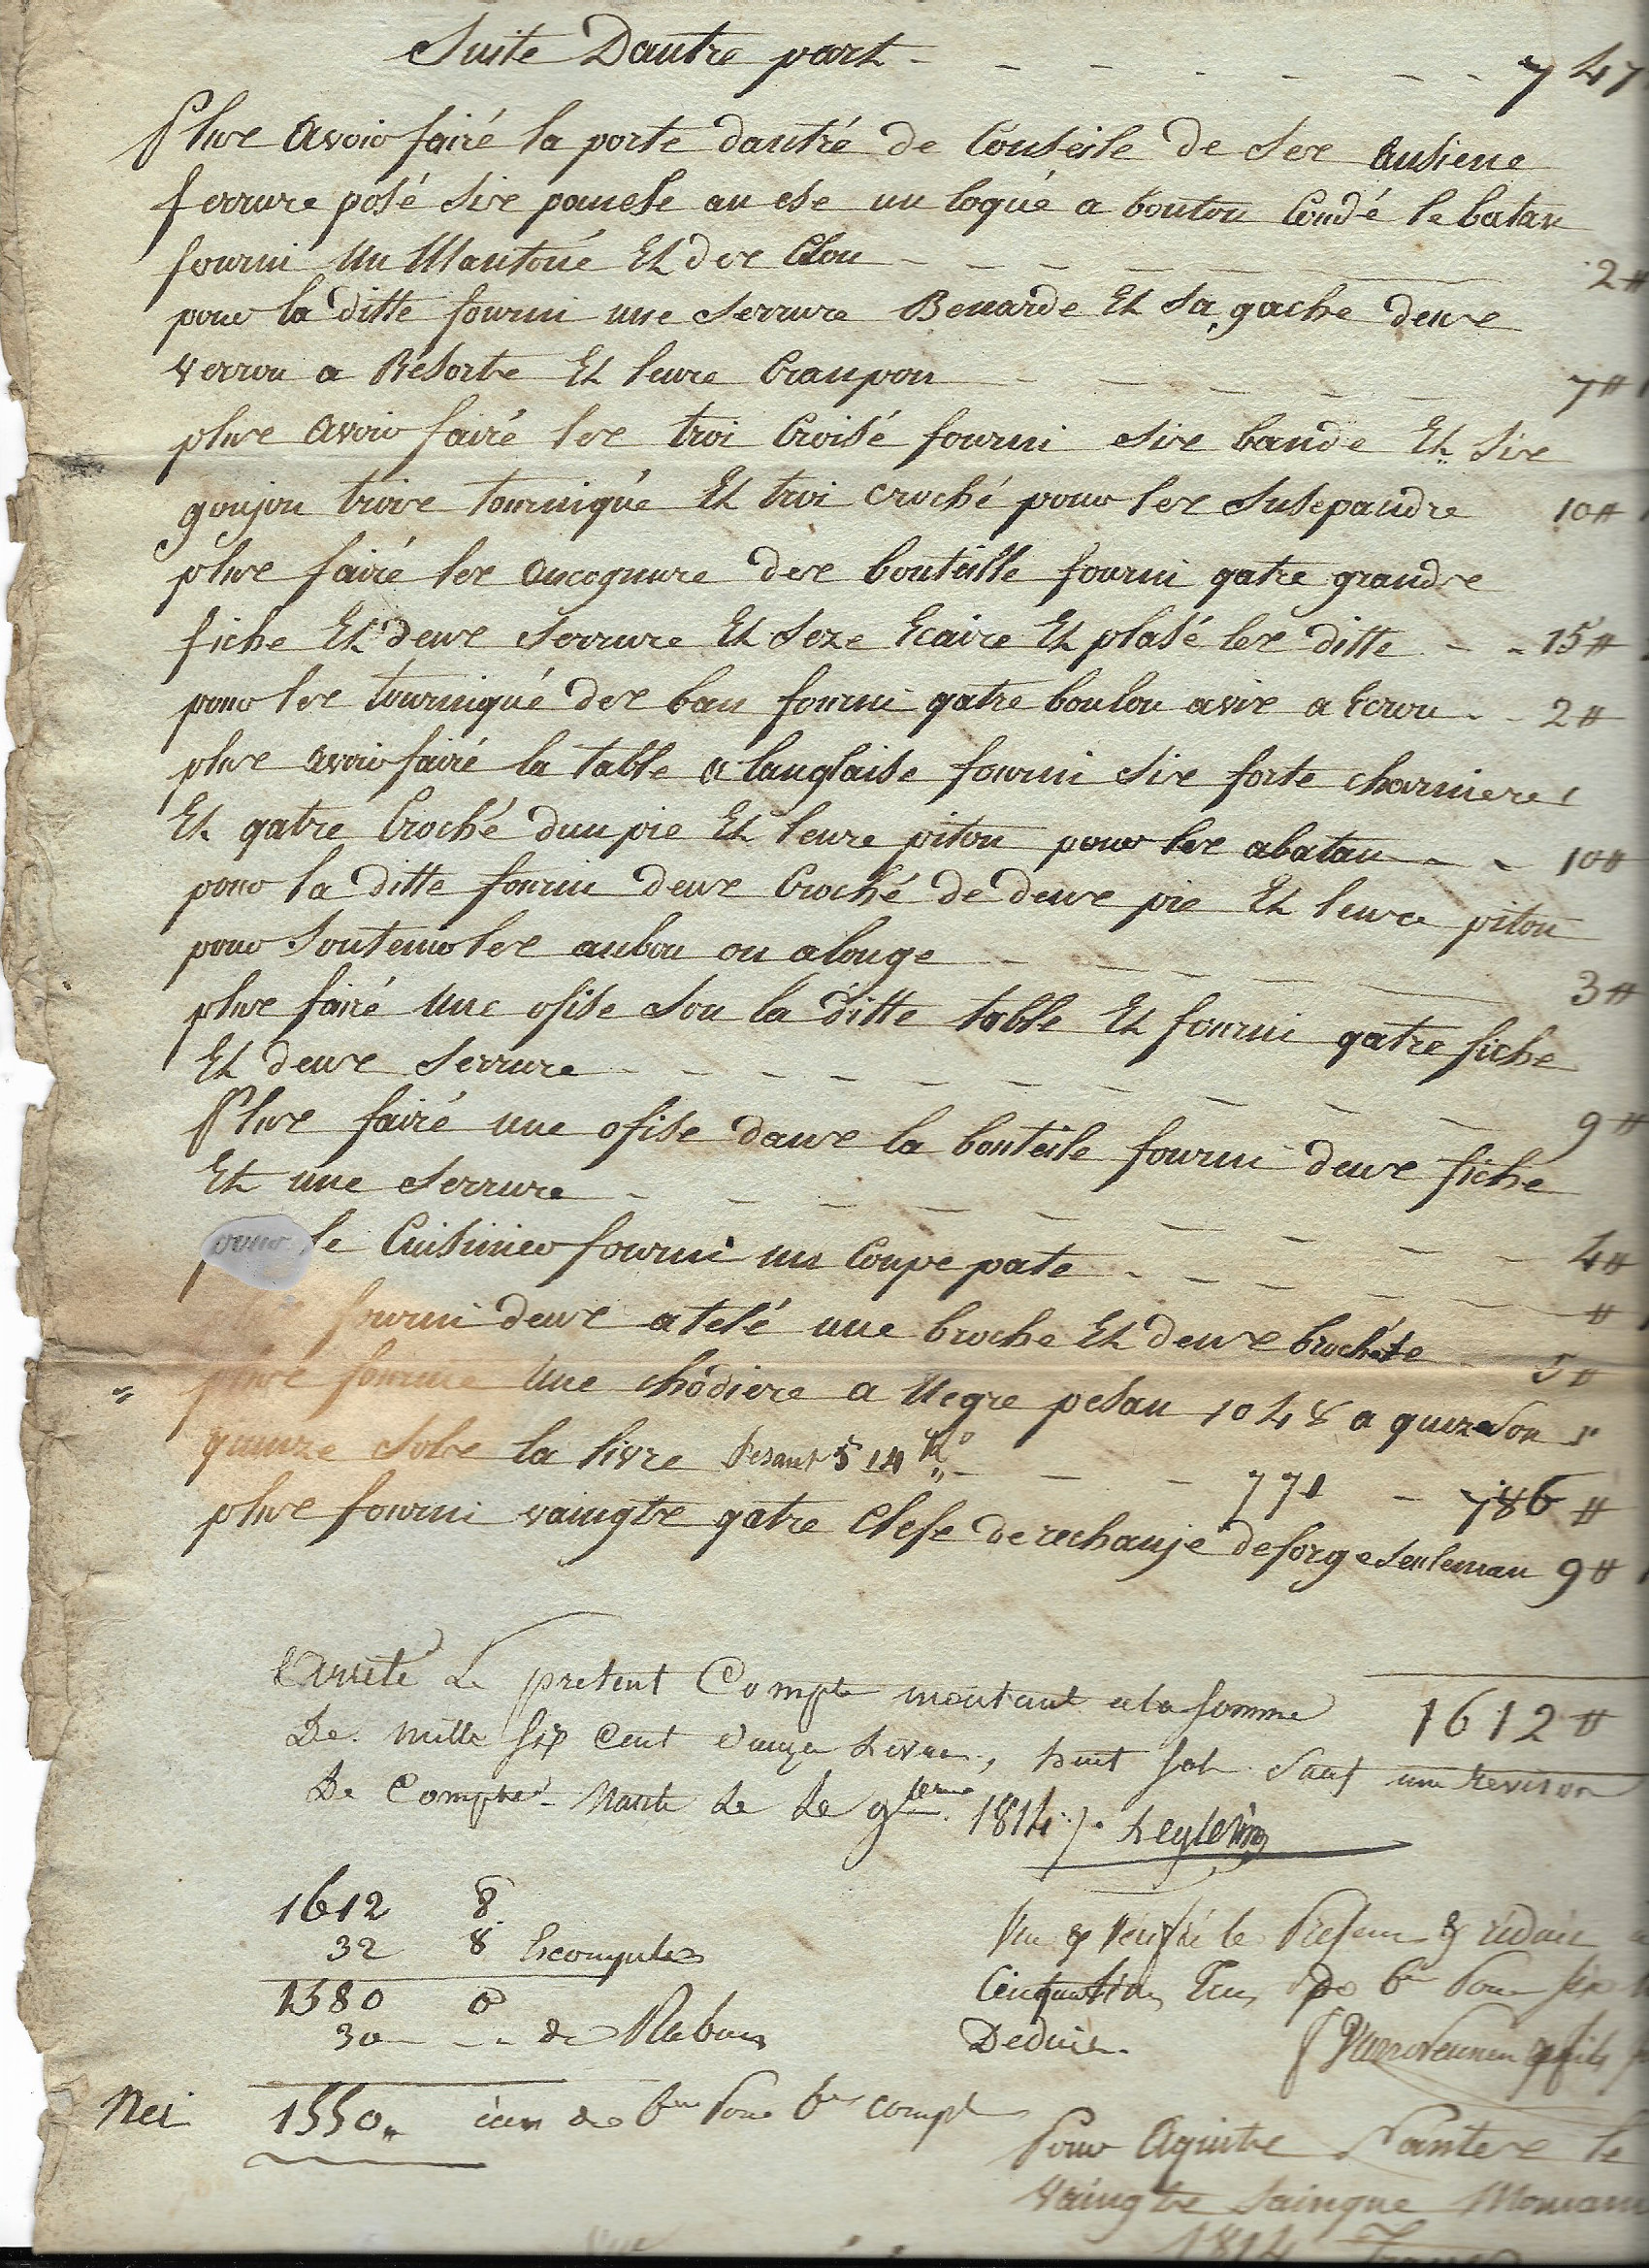 Suite Dautre part - - - - - - - 747
Plus avoir fairé la porte dantré de Conseile de ses ansiene
ferrure posé sis pomele au ese un loqué a bouton Coudé le batan
fourni un Mantoné Et des Clou - - - - - 2 ⧺
pour la ditte fourni une serrure Benarde Et sa gache deus
verrou a Résorte Et leurs Crampon - - - - - 7 ⧺
plus avoir fairé les troi Croisé fourni sis bande Et sis
goujon trois tourniqué Et troi croché pour les susepandre 10 ⧺
plus fairé les ancognure des bouteille fourni qatre grands
fiche Et deus serrure Et seze Ecaire Et plasé les ditte - - 15 ⧺
pour les tourniqué des ban fourni qatre boulon avis a Ecrou - - 2 ⧺
plus avoir fairé la table a langlaise fourni sis forte charniere
Et qatre Croché dun pie Et leurs piton pour les abatan - - 10 ⧺
pour la ditte fourni deus Croché de deus pie Et leurs piton
pour soutenir les anbou ou alonge - - - - - 3 ⧺
plus fairé une ofise sou la ditte table Et fourni qatre fiche
Et deus serrure - - - - - - - - 9 ⧺
Plus fairé une ofise dans la bouteile fourni deus fiche
Et une serrure - - - - - - - - 4 ⧺
pour le Cuisinier fourni un Coupe pate - - - - ⧺
fourni deus atelé une broche Et deus brochete 5 ⧺
" plus fournie une chodiere a Negre pesan 1048 a quinze sou
quinze sols la livre Pesant 514 - - - 771 - 786 ⧺
plus fourni vaingts qatre Clefs derechanje deforge seuleman 9 ⧺
Arrêté Le present Compte montant ala somme 1612 ⧺
De mille six Cent douze Livres, huit sols sauf une revision
De Compte Nante Le 1814
1612 8
32 8 Escompte
1580 0
30 - - de Rabais
Net 1550 "
Vu & Verifié le Present & réduit
Deduire.
Pour Aquitre Nantese le
vaingts sainque
1814